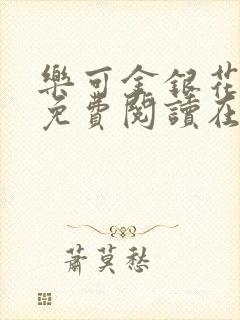 樂可金銀花
免費閱讀在
蕭莫愁